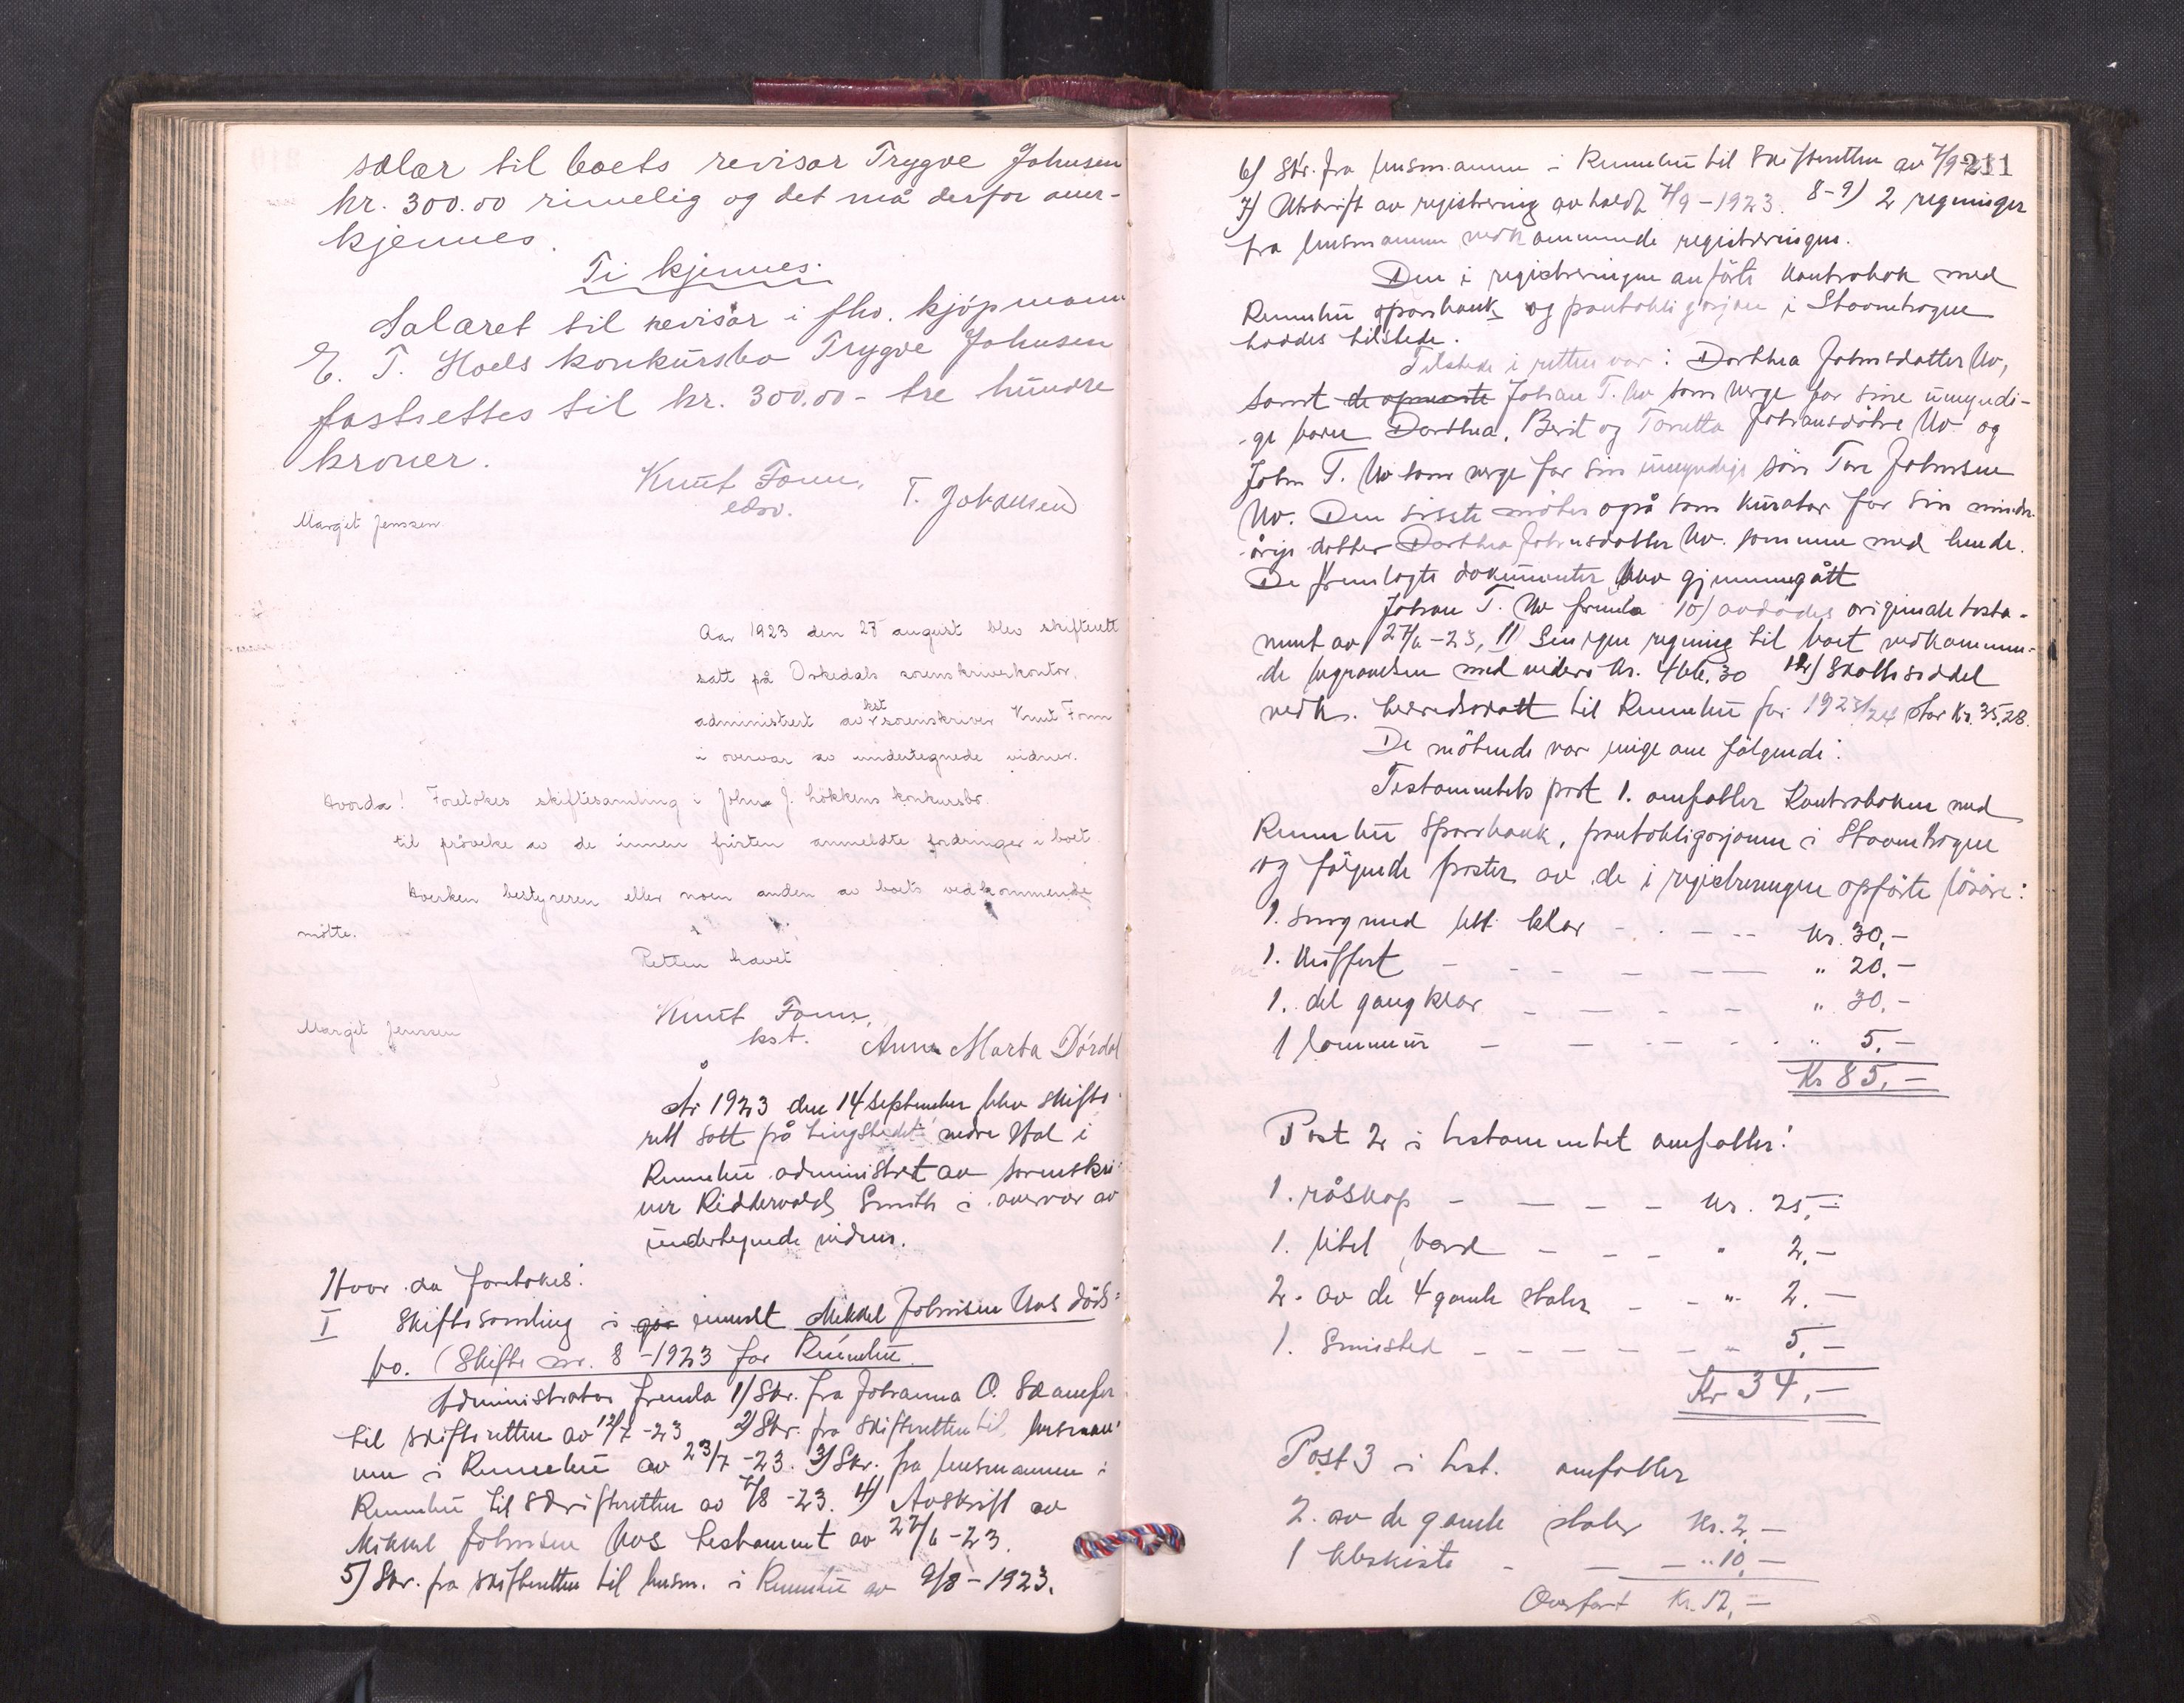 salær til boets revisor Trygve Johnsen
kr. 300.00 rimelig og det må derfor aner-
kjennes.
Ti kjennes:
Salæret til revisor i fhv. kjøpmann
E. T. Hoels konkursbo Trygve Johnsen
fastsettes til kr. 300.00 - tre hundre
kroner.
Knut Fonn,
edsv.
T. Johansen
Margit Jenssen
Aar 1923 den 27 august blev skifterett
satt på Orkedals sorenskriverkontor,
administrert av kst sorenskriver Knut Fonn
i overvær av undertegnede vidner.
Hvorda! Foretokes skiftesamling i John J. Løkkens konkursbo
til prøvelse av de innen fristen anmeldte fordringer i boet.
Hverken bestyreren eller noen anden av boets vedkommende
møtte.
Retten hævet
Knut Fonn,
kst.
Margit Jenssen
Anna Marta Dørdal
År 1923 den 14 september blev skifte-
rett satt på tingstedet nedre Hol i
Rennebu administrert av sorenskri-
ver Riddervold Smith i overvær av
undertegnede vidner.
Hvor da foretokes:
I Skiftesamling i enslt Mikkel Johnsen Uvs døds-
bo. (Skifte nr. 8 - 1923 for Rennebu.
Administrator fremla 1) Skr. fra Johanna O. Skamfer
til skifteretten av 12/7 -23 2) Skr. fra skifteretten til lensman-
nen i Rennebu av 23/7 -23. 3) Skr. fra lensmannen i
Rennebu til skifteretten av 7/8 -23. 4) Avskrift av
Mikkel Johnsen Uvs testament av 27/6 -23.
5) Skr. fra skifteretten til lensm. i Rennebu av 9/8 - 1923.
211
6) Skr. fra lensmannen i Rennebu til skifteretten av 7/9-23
7) Utskrift av registrering avholdt 4/9 - 1923. 8-9) 2 regninger
fra lensmannen vedkommende registreringen.
Den i registreringen anførte kontrabok med
Rennebu sparebank og pantobligasjon i Stoomhogen
haddes tilstede.
Tilstede i retten var: Dorthea Johnsdatter Uv,
samt de Johan T. Uv som verge for sine umyndi-
ge barn Dorthea, Berit og Toretta Johansdøtre Uv og
John T. Uv som verge for sin umyndige søn Tore Johnsen
Uv. Den siste møter også som kurator for sin minder-
årige datter Dorthea Johnsdatter Uv. sammen med hende.
De fremlagte dokumenter blev gjennemgått
Johan T. Uv fremla 10) avdødes originale testa-
ment av 27/6 -23, 11) Sin egen regning til boet vedkommen-
de begravelsen med videre kr. 466,30 12) Skattseddel
vedk. herredsskatt til Rennebu for 1923/24 stor kr. 35,28.
De møtende var enige om følgende:
Testamentets post 1. omfatter Kontraboken med
Rennebu Sparebank, pantobligasjonen i Stoomhogen
og følgende poster av de i registreringen opførte løsøre:
1. seng med ullklær - - - - kr. 30,-
1. kuffert - - - - - - " 20,-
1. del gangklær - - - - " 30,-
1 lommeur - - - - - " 5,-
Kr 85,-
Post 2 i testamentet omfatter:
1. råskap - - - - kr. 25,-
1. litet bord - - - " 2,-
2. av de 4 gamle stoler - - " 2,-
1. Smisted - - - - - - " 5,-
Kr 34,-
Post 3 i test. omfatter
2. av de gamle stoler kr. 2,-
1 klæskiste - - - " 10,-
Overført Kr. 12,-